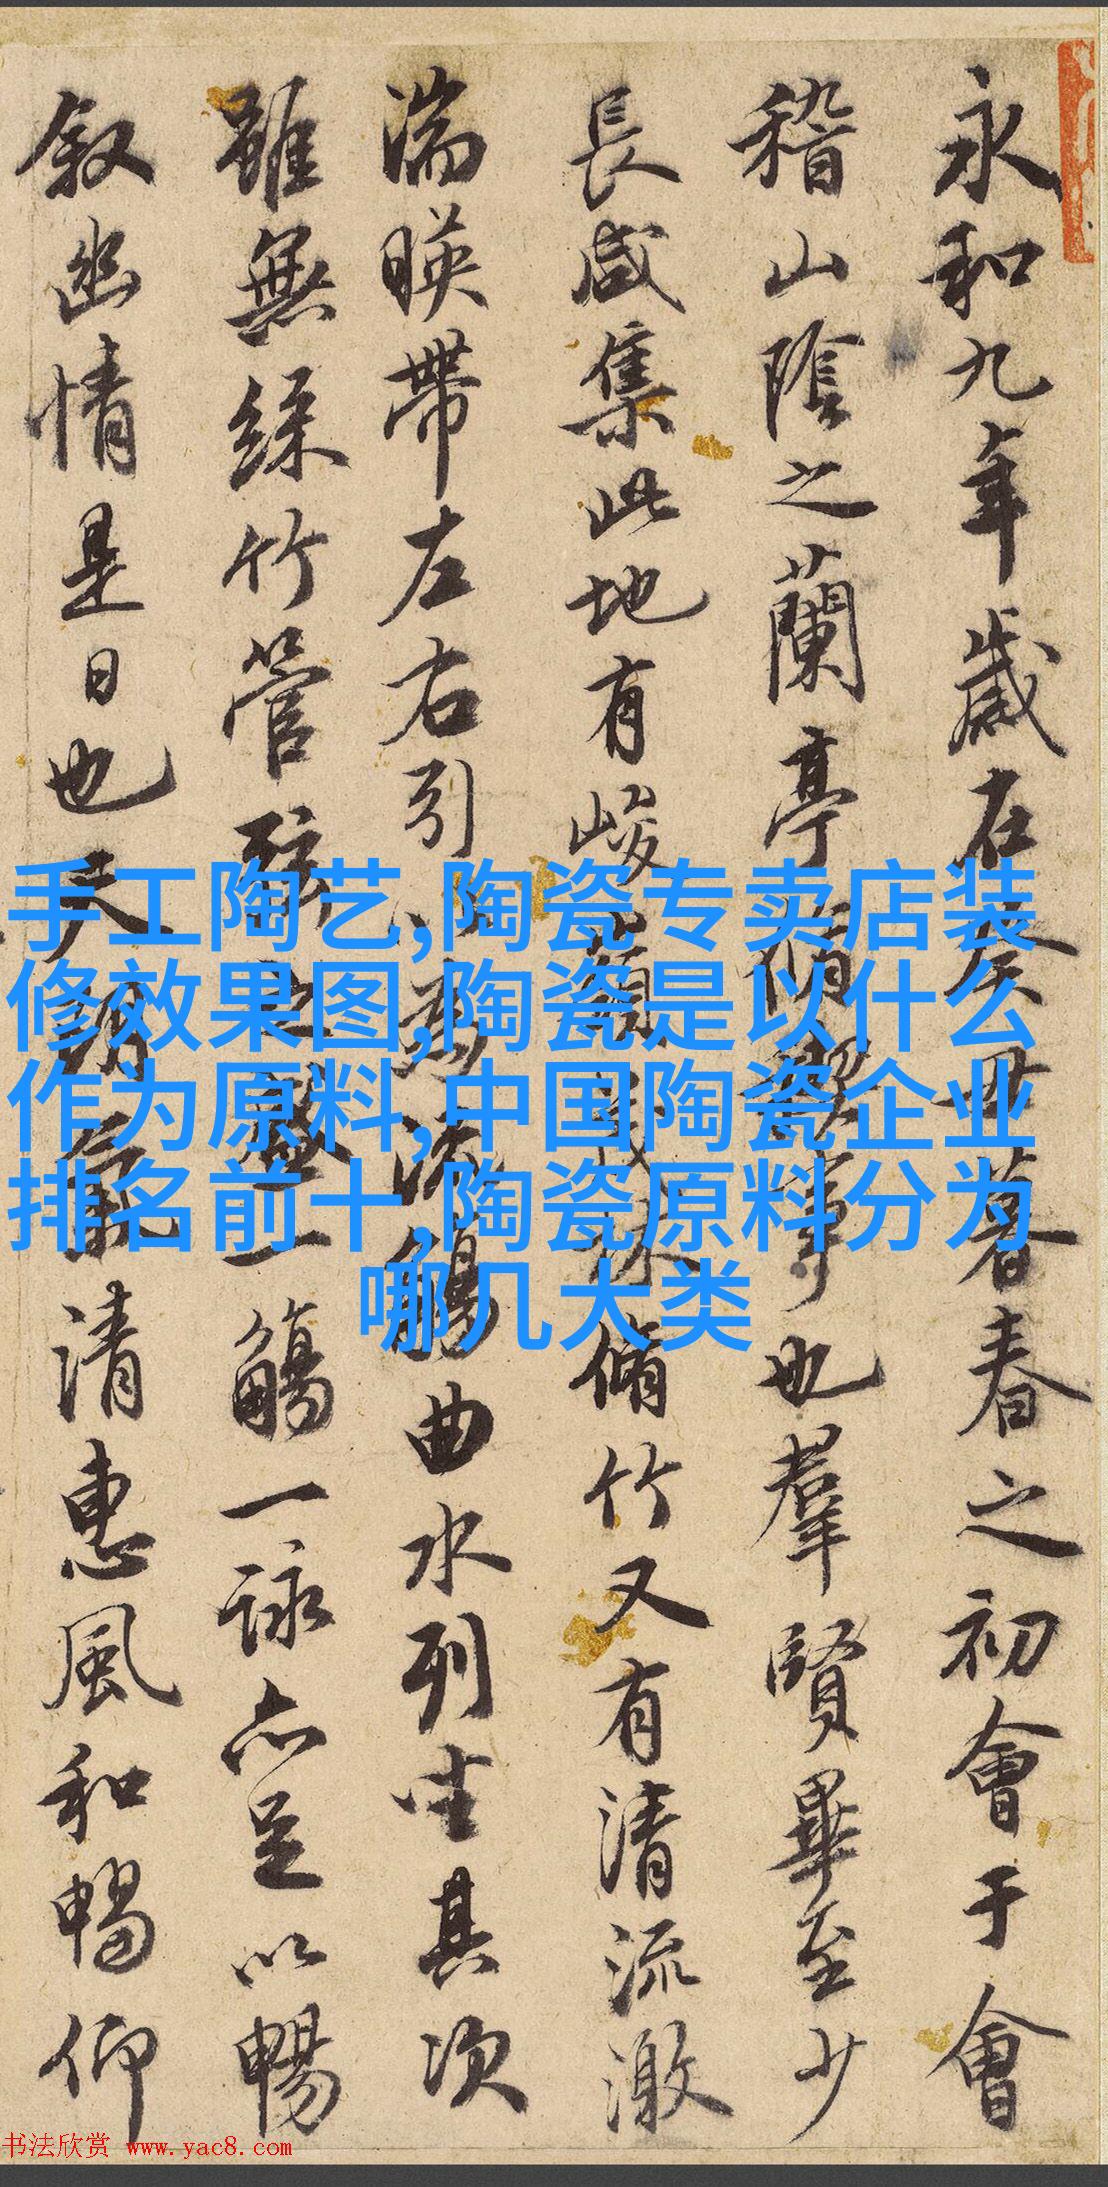 永和九年歲在癸丑暮春之初會于會
稽山陰之蘭亭脩禊事也羣賢畢至少
長咸集此地有峻領茂林脩竹又有清流激
湍暎帶左右引以為流觴曲水列坐其次
雖無絲竹管弦之盛一觴一詠亦足以暢
敘幽情是日也天朗氣清惠風和暢仰
手工陶艺,陶瓷专卖店装
修效果图,陶瓷是以什么
作为原料,中国陶瓷企业
排名前十,陶瓷原料分为
哪几大类
书法欣赏 www.yac8.com